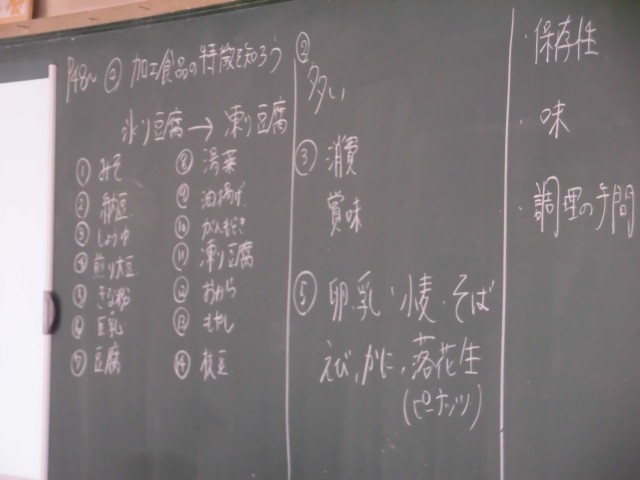 P48〜 ② 加工食品の特徴を知ろう
氷り豆腐→凍り豆腐
① みそ
② 納豆
③ しょうゆ
④ 煎り大豆
⑤ きな粉
⑥ 豆乳
⑦ 豆腐
⑧ 湯葉
⑨ 油揚げ
⑩ がんもどき
⑪ 凍り豆腐
⑫ おから
⑬ もやし
⑭ 枝豆
②
多い
③ 消費
賞味
⑤ 卵・乳・小麦・そば
えび,かに,落花生
(ピーナッツ)
・保存性
・味
・調理の手間